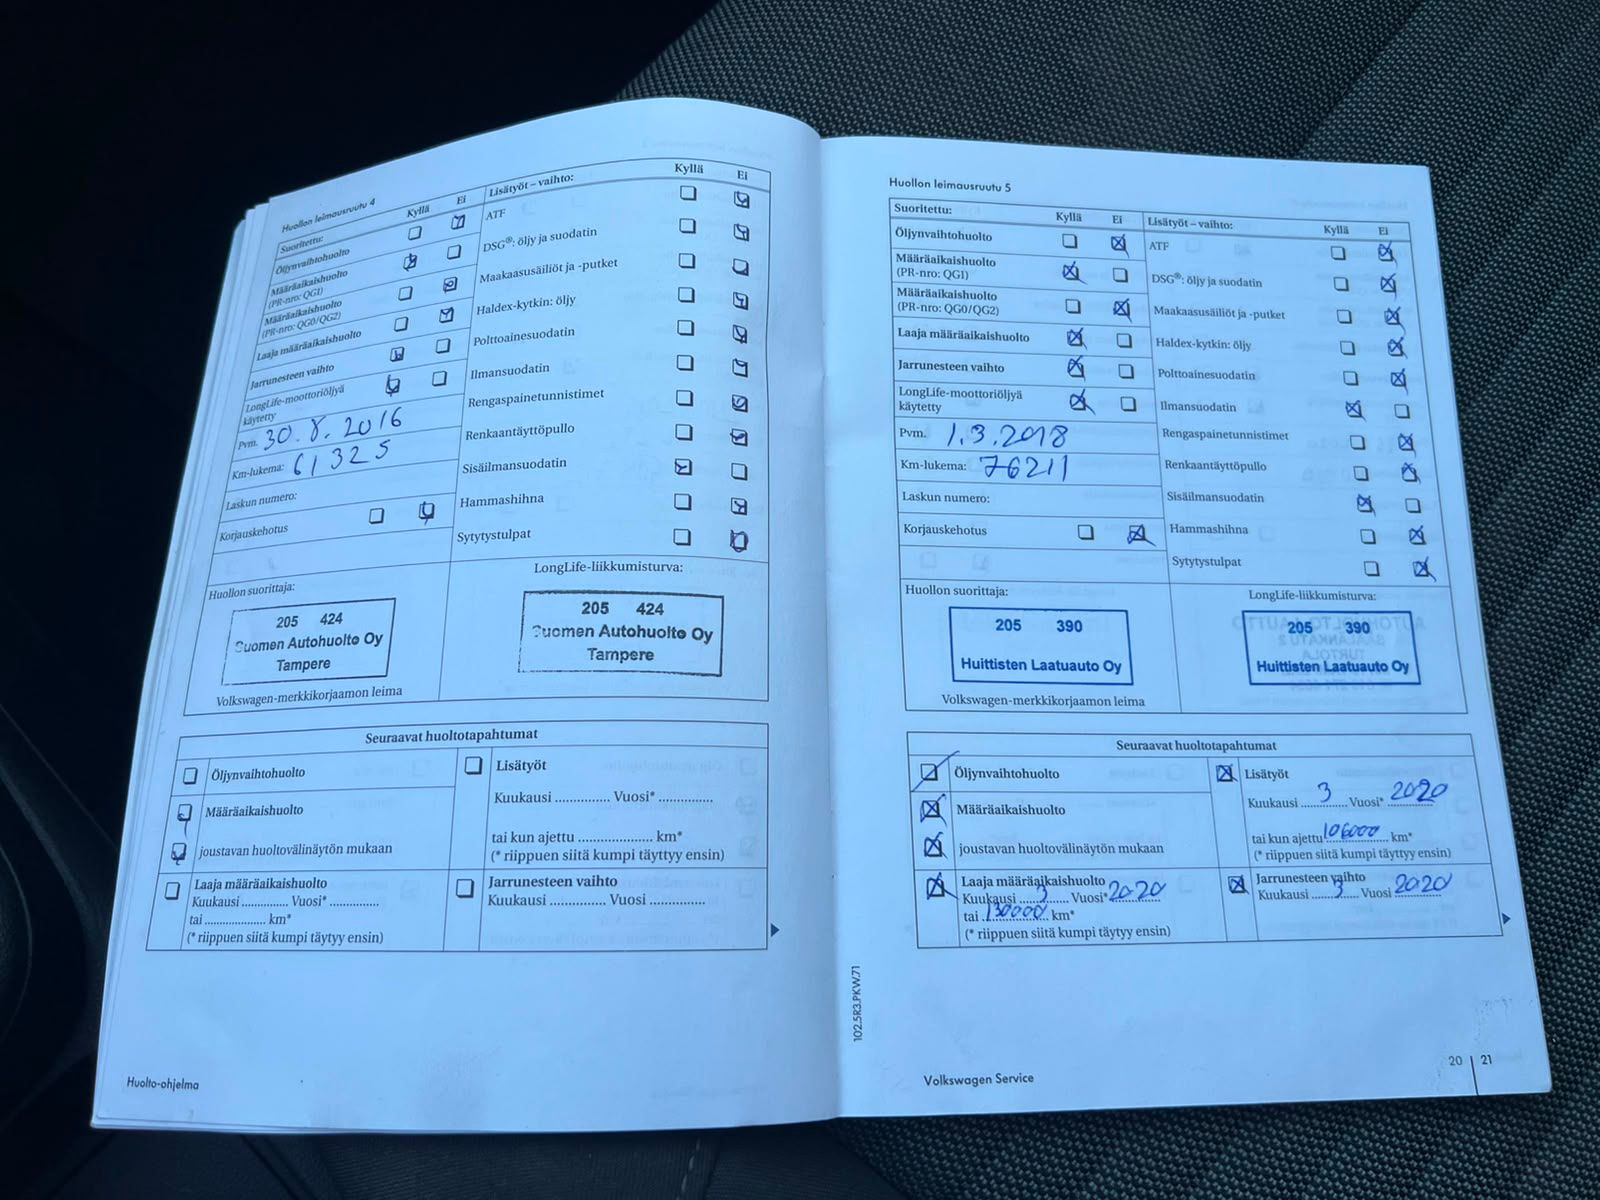 Huollon leimausruutu 4
Suoritettu: Kyllä Ei
Öljynvaihtohuolto
Määräaikaishuolto
(PR-nro: QG1)
Määräaikaishuolto
(PR-nro: QG0/QG2)
Laaja määräaikaishuolto
Jarrunesteen vaihto
LongLife-moottoriöljyä
käytetty
Pvm. 30.8.2016
Km-lukema: 61325
Laskun numero:
Korjauskehotus
Lisätyöt – vaihto: Kyllä Ei
ATF
DSG®: öljy ja suodatin
Maakaasusäiliöt ja -putket
Haldex-kytkin: öljy
Polttoainesuodatin
Ilmansuodatin
Rengaspainetunnistimet
Renkaantäyttöpullo
Sisäilmansuodatin
Hammashihna
Sytytystulpat
Huollon suorittaja:
205 424
Suomen Autohuolto Oy
Tampere
Volkswagen-merkkikorjaamon leima
LongLife-liikkumisturva:
205 424
Suomen Autohuolto Oy
Tampere
Seuraavat huoltotapahtumat
Öljynvaihtohuolto
Määräaikaishuolto
joustavan huoltovälinäytön mukaan
Laaja määräaikaishuolto
Kuukausi .............. Vuosi* ..............
tai .................. km*
(* riippuen siitä kumpi täytyy ensin)
Lisätyöt
Kuukausi .............. Vuosi* ..............
tai kun ajettu .................. km*
(* riippuen siitä kumpi täyttyy ensin)
Jarrunesteen vaihto
Kuukausi .............. Vuosi ..............
Huolto-ohjelma
Huollon leimausruutu 5
Suoritettu: Kyllä Ei
Öljynvaihtohuolto
Määräaikaishuolto
(PR-nro: QG1)
Määräaikaishuolto
(PR-nro: QG0/QG2)
Laaja määräaikaishuolto
Jarrunesteen vaihto
LongLife-moottoriöljyä
käytetty
Pvm. 1.3.2018
Km-lukema: 76211
Laskun numero:
Korjauskehotus
Lisätyöt – vaihto: Kyllä Ei
ATF
DSG®: öljy ja suodatin
Maakaasusäiliöt ja -putket
Haldex-kytkin: öljy
Polttoainesuodatin
Ilmansuodatin
Rengaspainetunnistimet
Renkaantäyttöpullo
Sisäilmansuodatin
Hammashihna
Sytytystulpat
Huollon suorittaja:
205 390
Huittisten Laatuauto Oy
Volkswagen-merkkikorjaamon leima
LongLife-liikkumisturva:
205 390
Huittisten Laatuauto Oy
Seuraavat huoltotapahtumat
Öljynvaihtohuolto
Määräaikaishuolto
joustavan huoltovälinäytön mukaan
Laaja määräaikaishuolto
Kuukausi 3 Vuosi* 2020
tai 130000 km*
(* riippuen siitä kumpi täytyy ensin)
Lisätyöt
Kuukausi 3 Vuosi* 2020
tai kun ajettu 106000 km*
(* riippuen siitä kumpi täyttyy ensin)
Jarrunesteen vaihto
Kuukausi 3 Vuosi 2020
102.5R3.PKW.71
Volkswagen Service
20 21